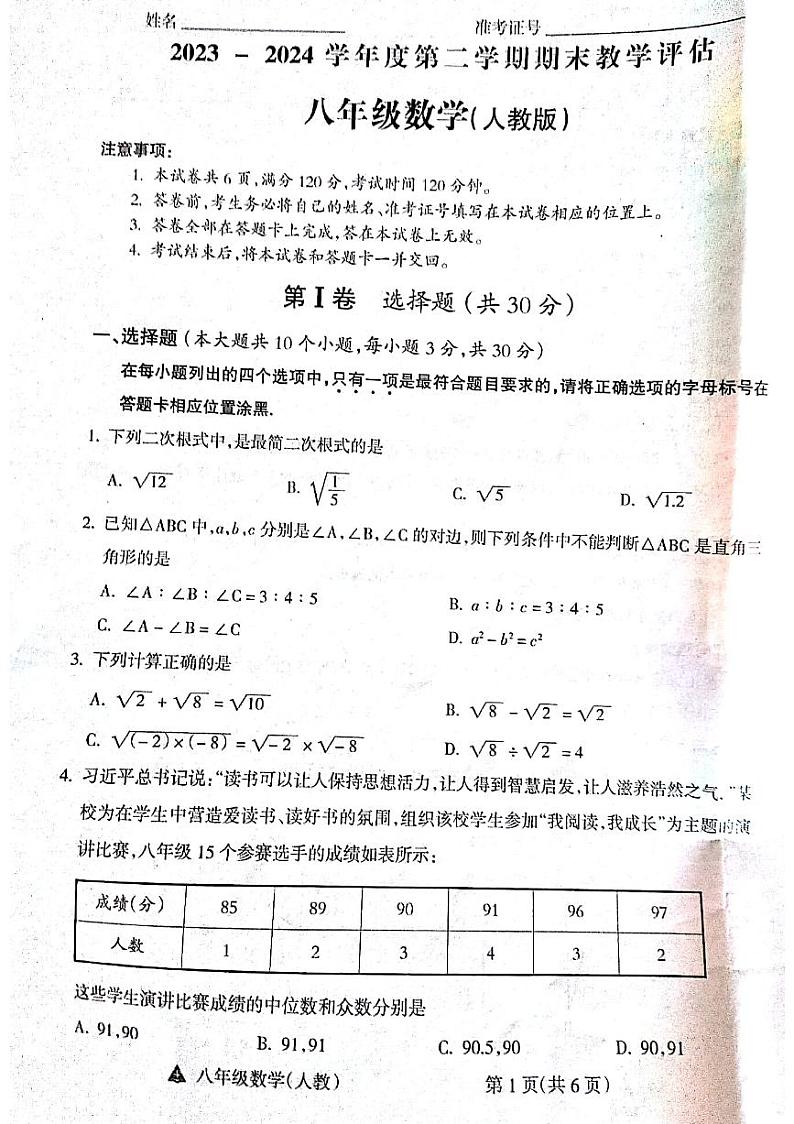 姓名 准考证号
2023 - 2024 学年度第二学期期末教学评估
八年级数学(人教版)
注意事项:
1. 本试卷共6页,满分120分,考试时间120分钟。
2. 答卷前,考生务必将自己的姓名、准考证号填写在本试卷相应的位置上。
3. 答卷全部在答题卡上完成,答在本试卷上无效。
4. 考试结束后,将本试卷和答题卡一并交回。
第Ⅰ卷 选择题(共30分)
一、选择题(本大题共10个小题,每小题3分,共30分)
在每小题列出的四个选项中,只有一项是最符合题目要求的,请将正确选项的字母标号在
答题卡相应位置涂黑.
1. 下列二次根式中,是最简二次根式的是
A. √12 B. √(1/5) C. √5 D. √1.2
2. 已知△ABC中,a,b,c分别是∠A,∠B,∠C的对边,则下列条件中不能判断△ABC是直角三
角形的是
A. ∠A∶∠B∶∠C=3∶4∶5 B. a∶b∶c=3∶4∶5
C. ∠A-∠B=∠C D. a²-b²=c²
3. 下列计算正确的是
A. √2+√8=√10 B. √8-√2=√2
C. √((-2)×(-8))=√-2×√-8 D. √8÷√2=4
4. 习近平总书记说:“读书可以让人保持思想活力,让人得到智慧启发,让人滋养浩然之气.”某
校为在学生中营造爱读书、读好书的氛围,组织该校学生参加“我阅读,我成长”为主题的演
讲比赛,八年级15个参赛选手的成绩如表所示:
成绩(分) 85 89 90 91 96 97
人数 1 2 3 4 3 2
这些学生演讲比赛成绩的中位数和众数分别是
A. 91,90 B. 91,91 C. 90.5,90 D. 90,91
八年级数学(人教) 第1页(共6页)